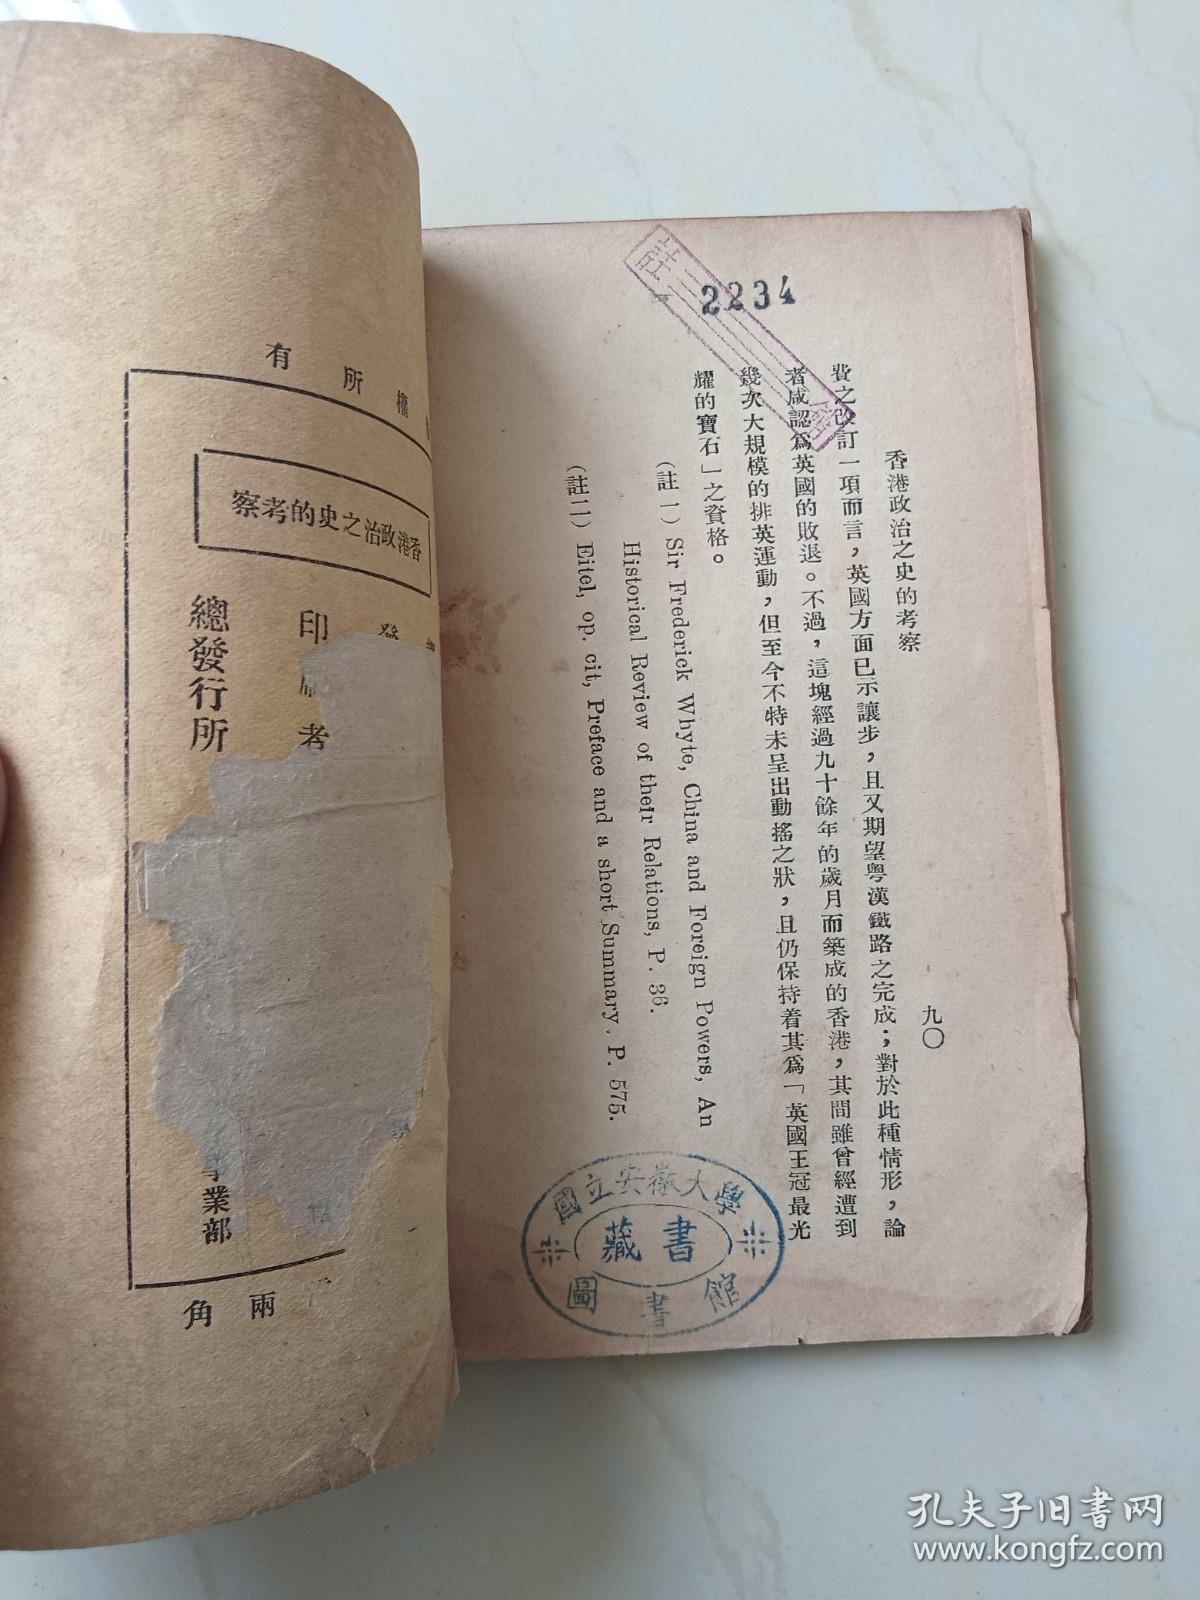 香港政治之史的考察
九〇
費之改訂一項而言，英國方面已示讓步，且又期望粵漢鐵路之完成；對於此種情形，論
者咸認爲英國的敗退。不過，這塊經過九十餘年的歲月而築成的香港，其間雖曾經遭到
幾次大規模的排英運動，但至今不特未呈出動搖之狀，且仍保持着其爲「英國王冠最光
耀的寶石」之資格。
（註一）Sir Frederick Whyte, China and Foreign Powers, An
Historical Review of their Relations, P. 36.
（註二）Eitel, op. cit, Preface and a short Summary. P. 575.
2234
註
國立安徽大學
藏書
圖書館
權所有
香港政治之史的考察
發
印
者
總發行所
業部
兩角
孔夫子旧书网
www.kongfz.com